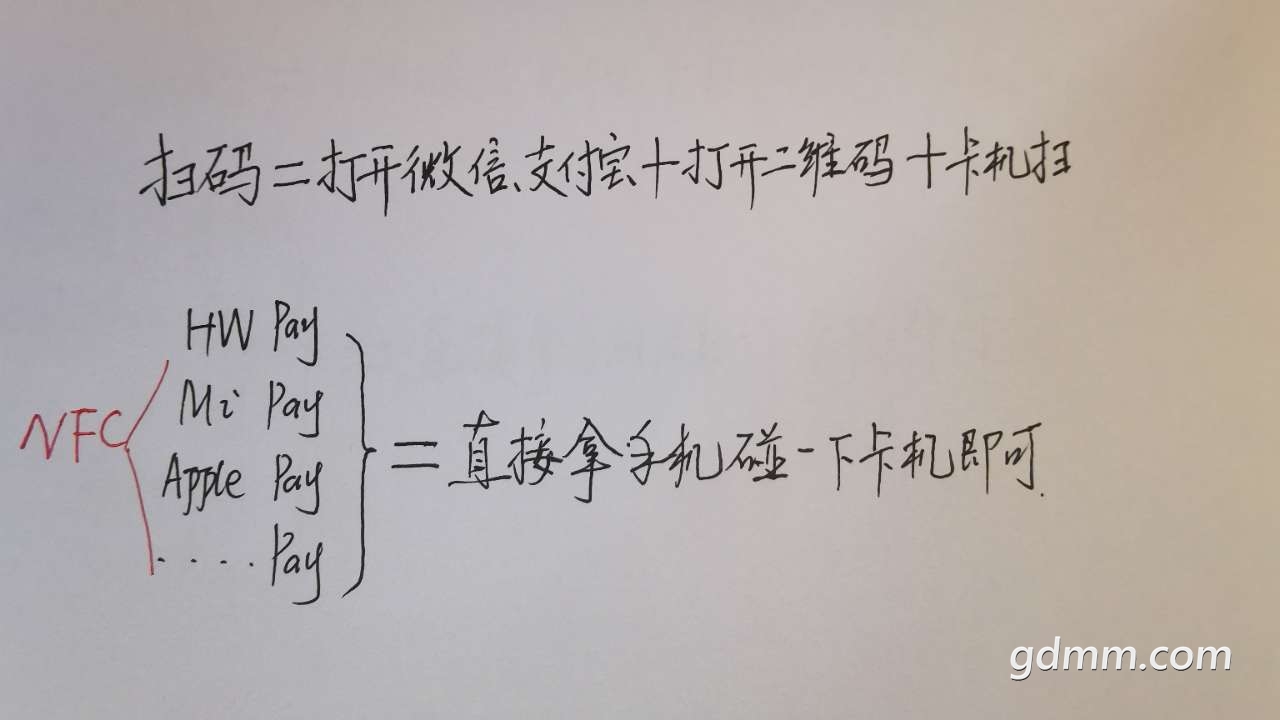 扫码=打开微信、支付宝+打开二维码+卡机扫
HW Pay
Mi Pay
NFC
Apple Pay
.....Pay
=直接拿手机碰一下卡机即可.
gdmm.com